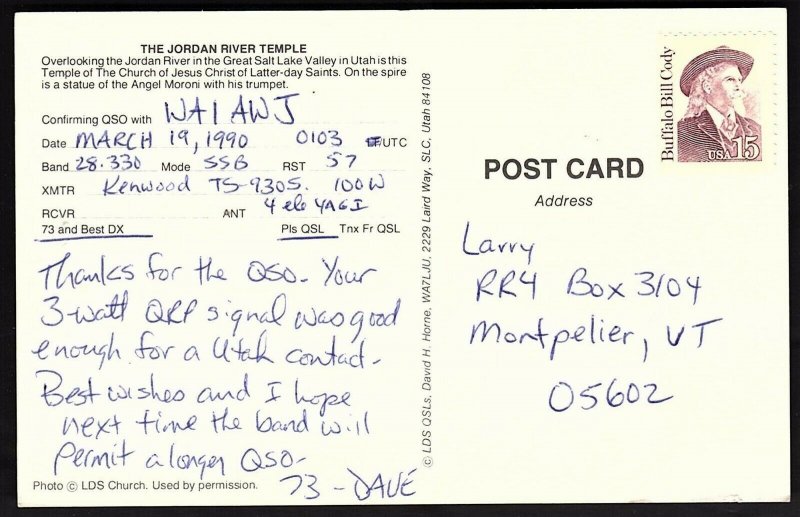 THE JORDAN RIVER TEMPLE
Overlooking the Jordan River in the Great Salt Lake Valley in Utah is this
Temple of The Church of Jesus Christ of Latter-day Saints. On the spire
is a statue of the Angel Moroni with his trumpet.
Confirming QSO with WA1AWJ
Date MARCH 19, 1990 0103 UTC
Band 28.330 Mode SSB RST 57
XMTR Kenwood TS-930S. 100W
RCVR ANT 4 ele YAGI
73 and Best DX Pls QSL Tnx Fr QSL
Thanks for the QSO. Your
3-watt QRP signal was good
enough for a Utah contact.
Best wishes and I hope
next time the band will
permit a longer QSO.
73 - DAVE
Photo © LDS Church. Used by permission.
© LDS QSLs, David H. Horne, WA7LJU, 2229 Laird Way, SLC, Utah 84108
Buffalo Bill Cody
USA 15
POST CARD
Address
Larry
RR4 Box 3104
Montpelier, VT
05602